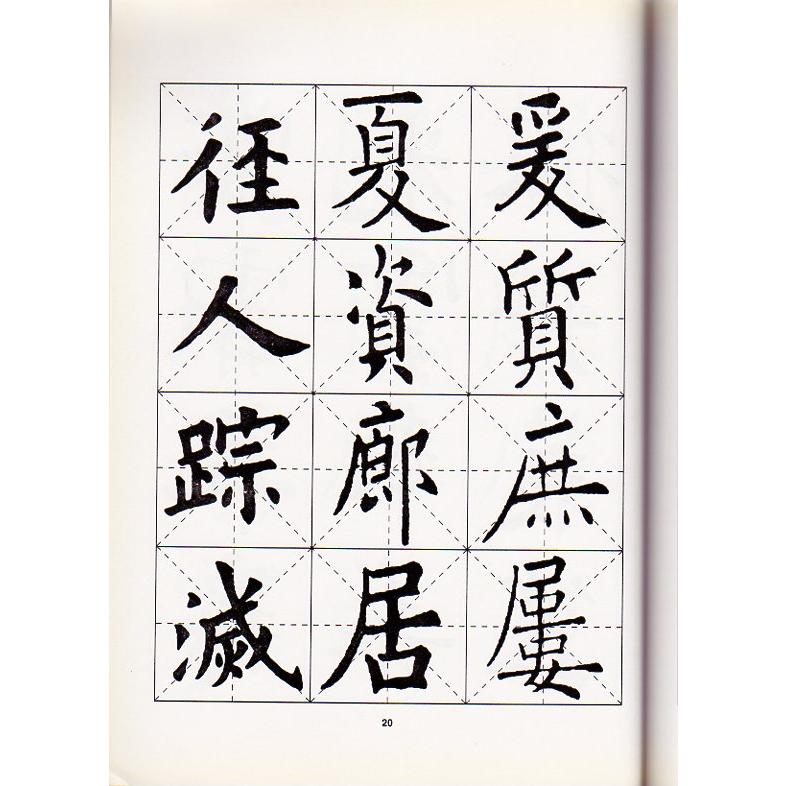 爰質庶屢
夏資廊居
徑人踪滅
20